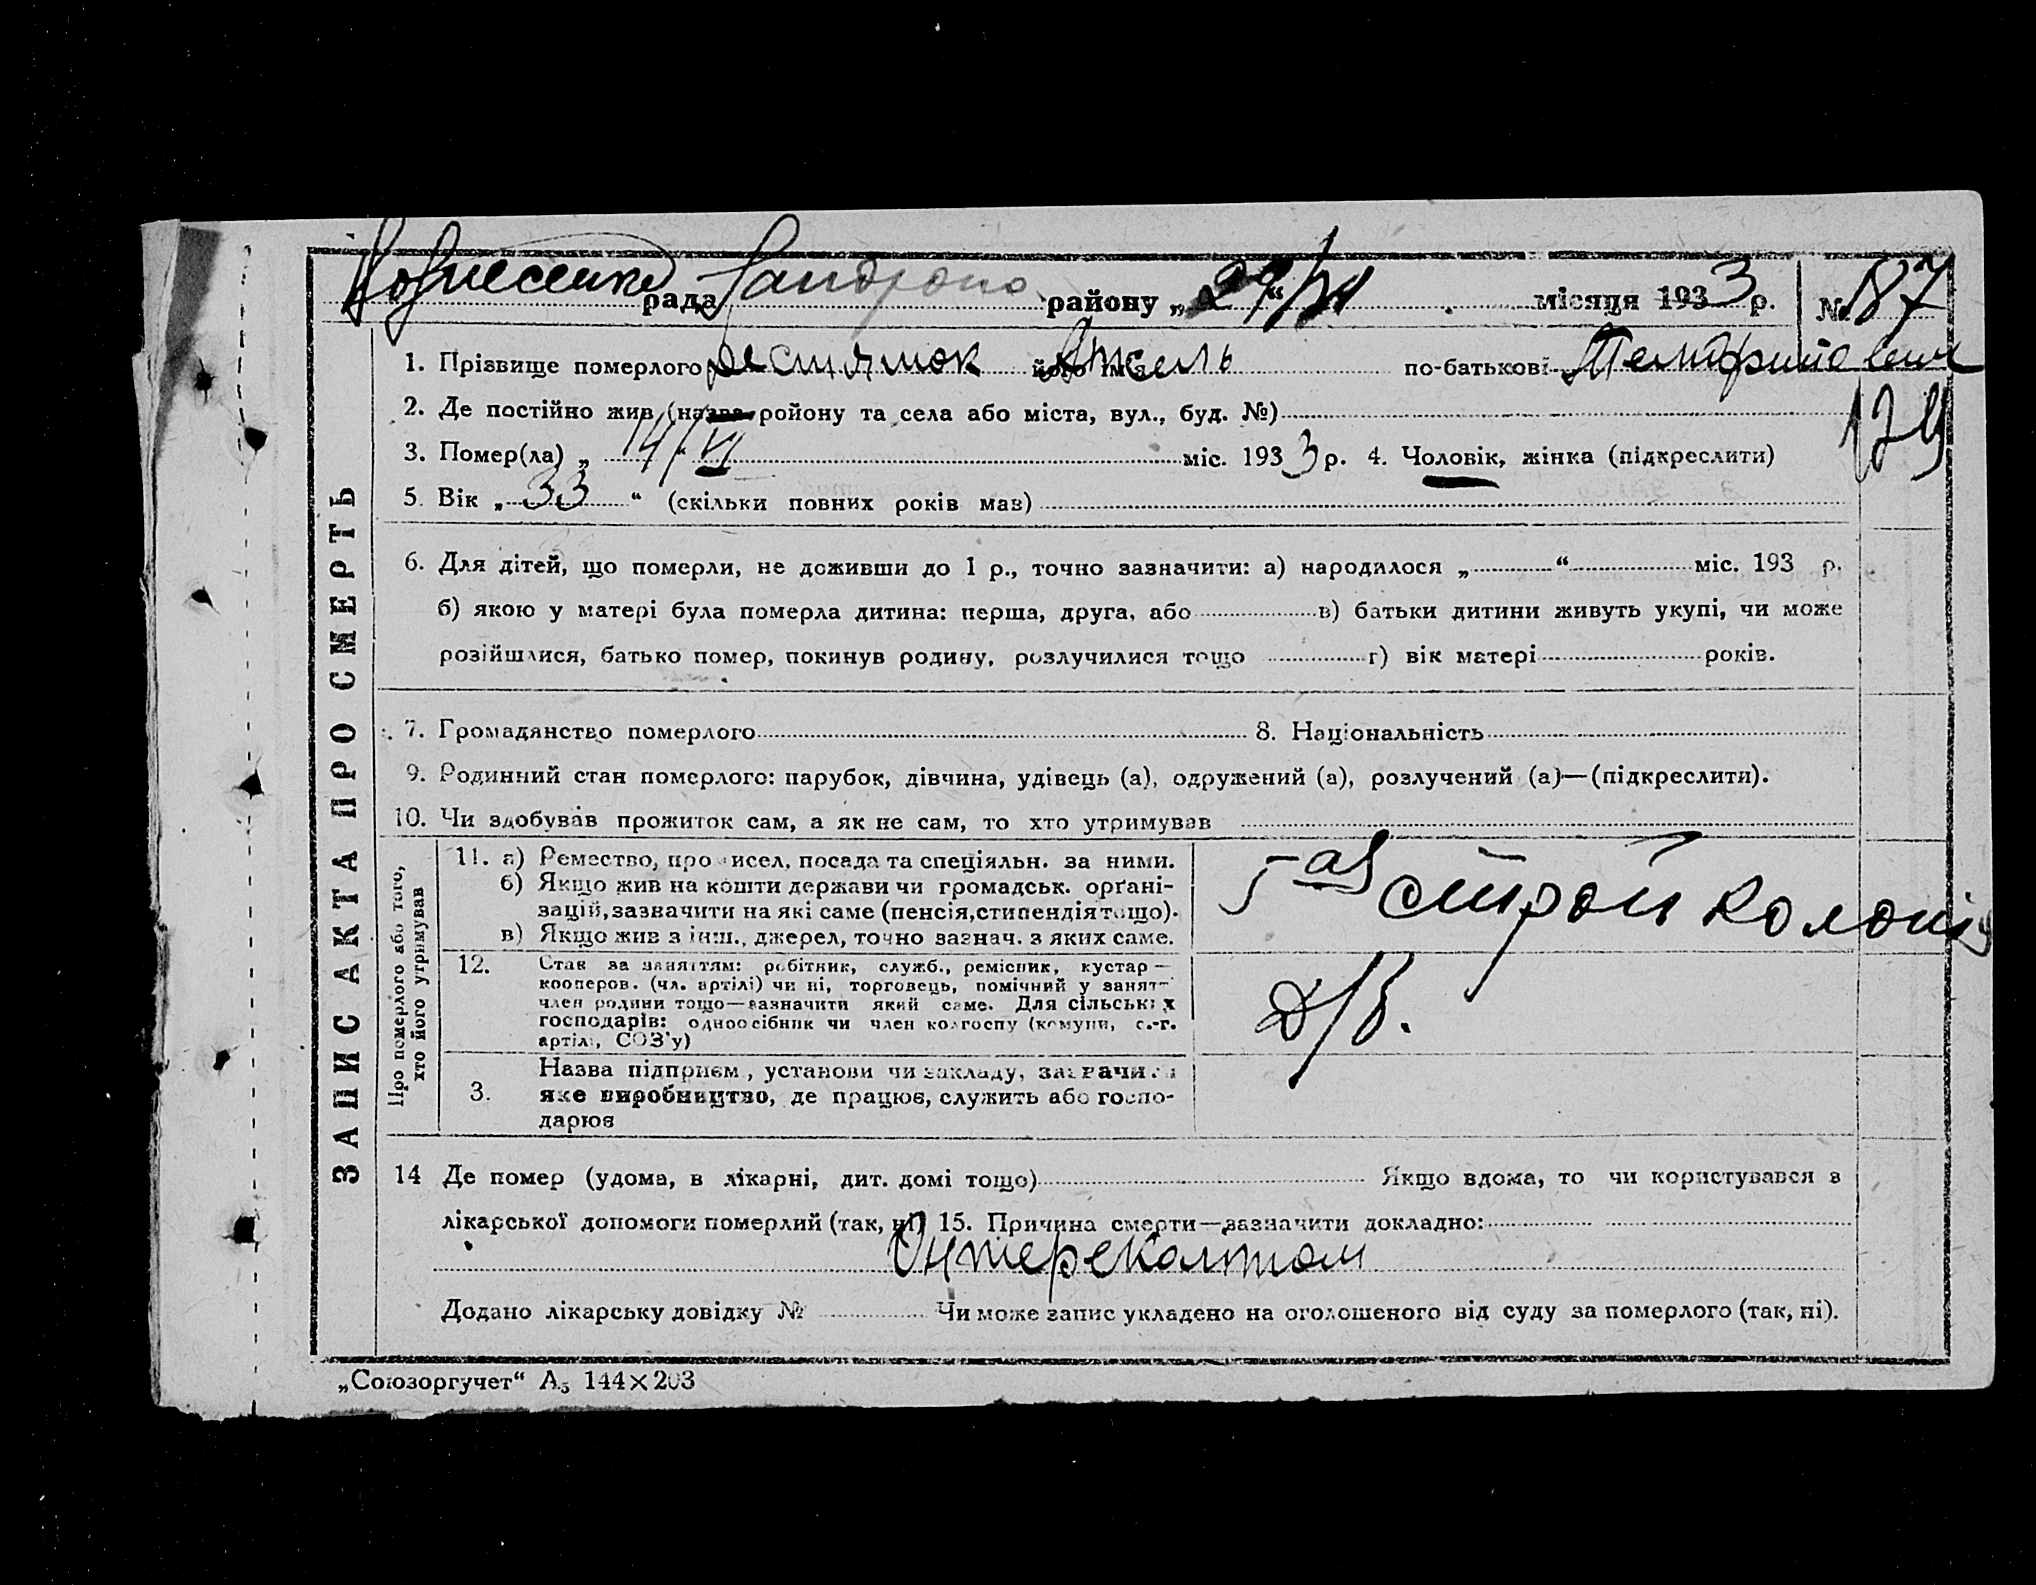 Вознесенка рада Запорож району „29/VI“ місяця 1933 р. № 87
1. Прізвище померлого його ім'я по-батькові
2. Де постійно жив (назва ройону та села або міста, вул., буд. №) 129
3. Помер(ла) „14/“ VI міс. 1933 р. 4. Чоловік, жінка (підкреслити)
5. Вік „33“ (скільки повних років мав)
6. Для дітей, що померли, не доживши до 1 р., точно зазначити: а) народилося „ “ міс. 193 р.
б) якою у матері була померла дитина: перша, друга, або в) батьки дитини живуть укупі, чи може
розійшлися, батько помер, покинув родину, розлучилися тощо г) вік матері років.
7. Громадянство померлого 8. Національність
9. Родинний стан померлого: парубок, дівчина, удівець (а), одружений (а), розлучений (а)—(підкреслити).
10. Чи здобував прожиток сам, а як не сам, то хто утримував
ЗАПИС АКТА ПРО СМЕРТЬ
Про померлого або того, хто його утримував
11. а) Ремество, про исел, посада та спеціяльн. за ними.
б) Якщо жив на кошти держави чи громадськ. орґані-
зацій, зазначити на які саме (пенсія, стипендія тощо).
в) Якщо жив з інш., джерел, точно зазнач. з яких саме.
5ая строй колонія
12. Стан за заняттям: робітник, служб., ремісник, кустар—
кооперов. (чл. артілі) чи ні, торговець, помічний у занят-
член родини тощо—зазначити який саме. Для сільських
господарів: одноосібник чи член колгоспу (комуни, с.-г.
артілі, СОЗ'у)
Д/В.
Назва підприєм., установи чи закладу, зазначити
3. яке виробництво, де працює, служить або госпо-
дарює
14 Де помер (удома, в лікарні, дит. домі тощо) Якщо вдома, то чи користувався з
лікарської допомоги померлий (так, ні) 15. Причина смерти—зазначити докладно:
Додано лікарську довідку № Чи може запис укладено на оголошеного від суду за померлого (так, ні).
„Союзоргучет“ А5 144×203